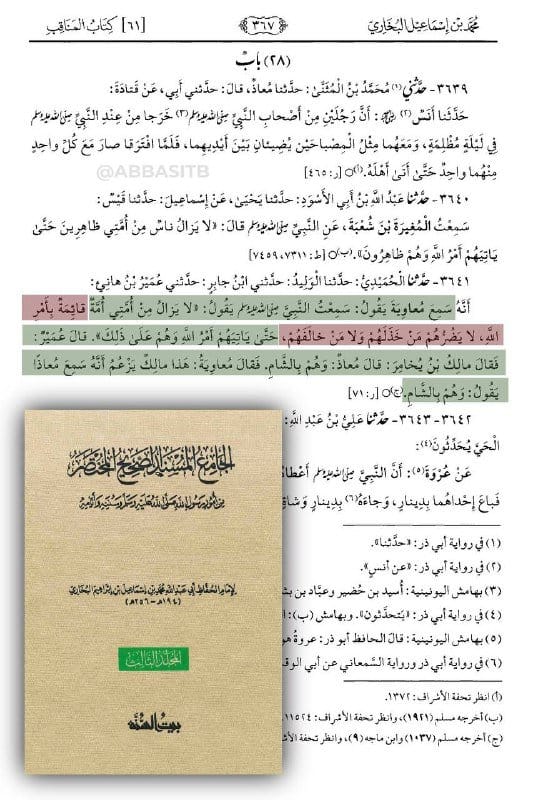 مُحَمَّد بْن إِسْمَاعِيل البُخَارِيّ
٣٦٧
[٦١] كِتَابُ المَنَاقِب
(٢٨) بابٌ
٣٦٣٩- حَدَّثَنِي (١) مُحَمَّدُ بْنُ الْمُثَنَّىٰ: حَدَّثَنا مُعاذٌ، قالَ: حَدَّثَنِي أَبِي، عَنْ قَتادَةَ:
حَدَّثَنا أَنَسٌ (٢) ﷺ: أَنَّ رَجُلَيْنِ مِنْ أَصْحابِ النَّبِيِّ صلى الله عليه وسلم (٣) خَرَجا مِنْ عِنْدِ النَّبِيِّ صلى الله عليه وسلم
فِي لَيْلَةٍ مُظْلِمَةٍ، وَمَعَهُما مِثْلُ الْمِصْباحَيْنِ يُضِيئانِ بَيْنَ أَيْدِيهِما، فَلَمَّا افْتَرَقا صارَ مَعَ كُلِّ واحِدٍ
مِنْهُما واحِدٌ حَتَّىٰ أَتَىٰ أَهْلَهُ. (أ)○ [ر: ٤٦٥]
@ABBASITB
٣٦٤٠- حَدَّثَنا عَبْدُ اللَّهِ بْنُ أَبِي الأَسْوَدِ: حَدَّثَنا يَحْيَىٰ، عَنْ إِسْماعِيلَ: حَدَّثَنا قَيْسٌ:
سَمِعْتُ الْمُغِيرَةَ بْنَ شُعْبَةَ، عَنِ النَّبِيِّ صلى الله عليه وسلم قالَ: «لا يَزالُ ناسٌ مِنْ أُمَّتِي ظاهِرِينَ حَتَّىٰ
يَأْتِيَهُمْ أَمْرُ اللَّهِ وَهُمْ ظاهِرُونَ». (ب)○ [ط: ٧٣١١، ٧٤٥٩]
٣٦٤١- حَدَّثَنا الْحُمَيْدِيُّ: حَدَّثَنا الْوَلِيدُ: حَدَّثَنِي ابْنُ جابِرٍ: حَدَّثَنِي عُمَيْرُ بْنُ هانِئٍ:
أَنَّهُ سَمِعَ مُعاوِيَةَ يَقُولُ: سَمِعْتُ النَّبِيَّ صلى الله عليه وسلم يَقُولُ: «لا يَزالُ مِنْ أُمَّتِي أُمَّةٌ قائِمَةٌ بِأَمْرِ
اللَّهِ، لا يَضُرُّهُمْ مَنْ خَذَلَهُمْ وَلا مَنْ خالَفَهُمْ، حَتَّىٰ يَأْتِيَهُمْ أَمْرُ اللَّهِ وَهُمْ عَلَىٰ ذَلِكَ». قالَ عُمَيْرٌ:
فَقالَ مالِكُ بْنُ يُخامِرَ: قالَ مُعاذٌ: وَهُمْ بِالشَّامِ. فَقالَ مُعاوِيَةُ: هَذا مالِكٌ يَزْعُمُ أَنَّهُ سَمِعَ مُعاذًا
يَقُولُ: وَهُمْ بِالشَّامِ. (ج)○ [ر: ٧١]
٣٦٤٢- ٣٦٤٣- حَدَّثَنا عَلِيُّ بْنُ عَبْدِ اللَّهِ:
الْحَيَّ يُحَدِّثُونَ (٤):
عَنْ عُرْوَةَ (٥): أَنَّ النَّبِيَّ صلى الله عليه وسلم
فَباعَ إِحْداهُما بِدِينارٍ، وَجاءَهُ (٦) بِدِينارٍ
(١) في رواية أبي ذر: «حدَّثنا».
(٢) في رواية أبي ذر: «عن أنسٍ».
(٣) بهامش اليونينية: أُسيد بن حُضير وعبَّاد بن
(٤) في رواية أبي ذر: «يَتحدَّثون». وبهامش (ب):
(٥) بهامش اليونينية: قالَ الحافظ أبو ذر: عروةُ
(٦) في رواية أبي ذر ورواية السَّمعاني عن أبي
(أ) انظر تحفة الأشراف: ١٣٧٢.
(ب) أخرجه مسلم (١٩٢١)، وانظر تحفة الأشراف: ١١٥٢٤.
(ج) أخرجه مسلم (١٠٣٧) وابن ماجه (٩)، وانظر تحفة
الجامع المسند الصحيح المختصر
من أمور رسول الله صلى الله عليه وسلم وسننه وأيامه
للإمام الحفاظ أبي عبد الله محمد بن إسماعيل بن إبراهيم البخاري
(١٩٤هـ - ٢٥٦هـ)
المجلد الثالث
بيت السنة